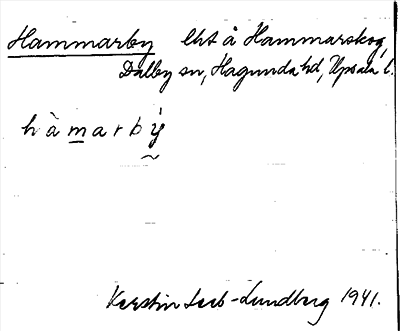 Hammarby lht å Hammarskog,
Dalby sn, Hagunda hd, Upsala l.
hàmarbý
Kerstin Leeb-Lundberg 1941.